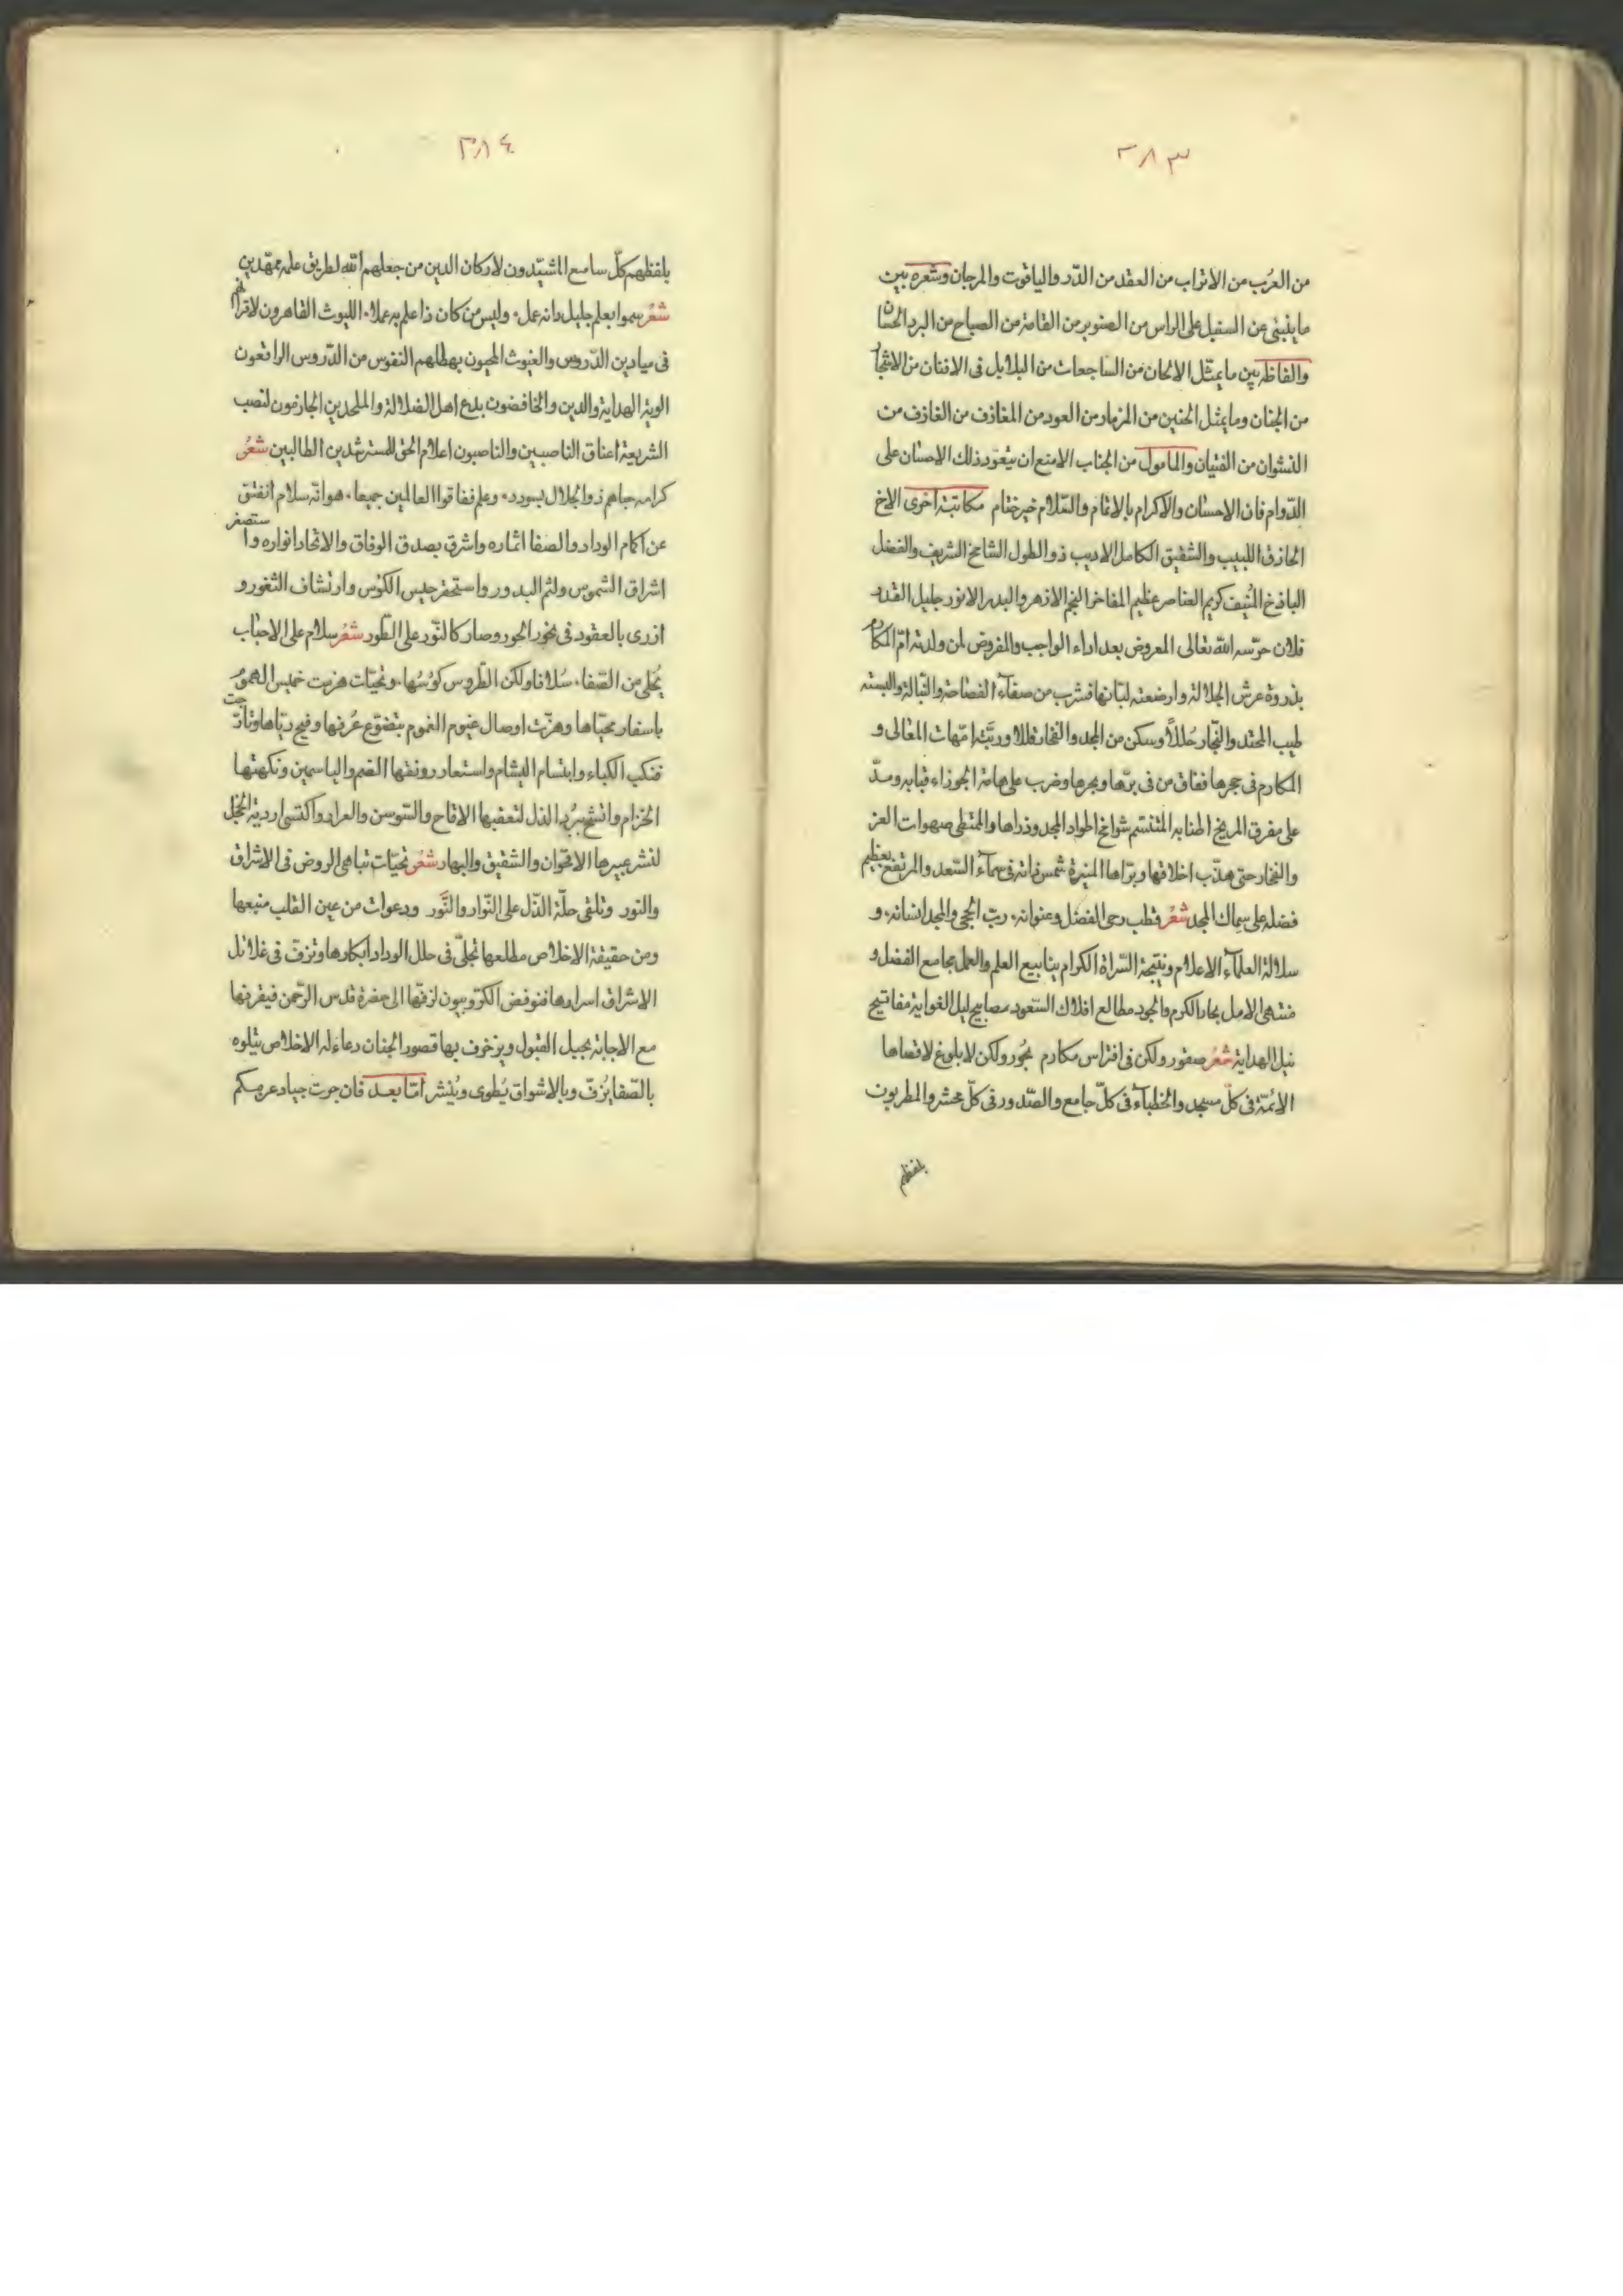 ٣٨٣
من العرب من الاتراب من العقد من الدّر والياقوت والمرجان وشعره بين
ما ينبئ عن السنبل على الراس من الصنوبر من القامة من الصباح من البرد الحسان
والفاظه بين ما يمثّل الالحان من الساجعات من البلابل فى الافنان من الاشجار
من الجنان وما يمثل الحنين من المزمار من العود من المعازف من العازف من
النشوان من الفتيان والمامول من الجناب الامنع ان يتعوّد ذلك الاحسان على
الدّوام فان الاحسان والاكرام بالاتمام والسّلام خير ختام مكاتبة اخرى الاخ
الحاذق اللبيب والشقيق الكامل الاديب ذو الطول الشامخ الشريف والفضل
الباذخ المنيف كريم العناصر عظيم المفاخر النجم الازهر والبدر الانور جليل القدر
فلان حرّسه الله تعالى المعروض بعد اداء الواجب والمفروض لمن ولدته امّ المكارم
بذروة عرش الجلالة وارضعته لبانها فشرب من صفآء الفصاحة والنّبالة والبسته
طيب المحتد والنّجار حُللاً وسكن من المجد والفخار قللا وربّته امّهات المعالى و
المكارم فى حجرها ففاق من فى برّها وبحرها وضرب على هامة الجوزاء قبابه ومدّ
على مفرق المريخ اطنابه المتنسّم شوامخ اطواد المجد وذراها والممتطى صهوات العز
والفخار حتى هذّب اخلاقها وبرّاها المنيرة شمس ذاته فى سمآء السّعد والمرتفع بعظيم
فضله على سماك المجد شعُر قطب رحى الفضل وعنوانه، ربّ الحجى والمجد انسانه، و
سلالة العلمآء الاعلام ونتيجة السّراة الكرام ينابيع العلم والعمل مجامع الفضل و
منتهى الامل بحار الكرم والجود مطالع افلاك السّعود مصابيح ليل الغواية مفاتيح
نيل الهداية شعُر صقور ولكن فى افتراس مكارم بحُور ولكن لا بلوغ لاقصاها
الائمّة فى كلّ مسجد والخطبآء فى كلّ جامع والصّدور فى كلّ محشر والمطربون
بلفظهم
٣٨٤
بلفظهم كلّ سامع المشيّدون لاركان الدين من جعلهم الله لطريق علمه ممهّدين
شعُر سموا بعلم جليل زانه عمل، وليس من كان ذا علم به عملا، الليوث القاهرون لاقرانهم
فى ميادين الدّروس والغيوث المحيون بهطلهم النفوس من الدّروس الرافعون
الوية الهداية والدين والخافضون بدع اهل الضلالة والملحدين الجازمون لنصب
الشريعة اعناق الناصبين والناصبون اعلام الحق للمسترشدين الطالبين شعُر
كرام حباهم ذو الجلال بسودد، وعلم ففاقوا العالمين جميعا، هو انّه سلام انفتق
عن اكمام الوداد والصفا اثماره واشرق بصدق الوفاق والاتحاد انواره واستصغر
اشراق الشموس ولثم البدور واستحقر حبيس الكئوس وارتشاف الثغور و
ازرى بالعقود فى نحور الحور وصار كالنّور على الطّور شعُر سلام على الاحباب
يُجلى من الصّفا، سُلافا ولكن الطّروس كؤسُها، وتحيّات هزمت خميس الهموم
باسفار محيّاها وهزّت اوصال غيوم الغموم بتضوّع عُرفها وفيح ريّاها وتأرّجت
فنكب الكباء وابتسام البشام واستعار رونقها الضم والياسمين ونكهتها
الخزام واتشح ببُرد الذل لتعقبها الاقاح والسّوسن والعرار واكتسى اردية الخجل
لنشر عبيرها الاقحوان والشقيق والبهار شعُر تحيّات تباهى الروض فى الاشراق
والنور وتلقى حلّة الذّل على النّوار والنَّور ودعوات من عين القلب منبعها
ومن حقيقة الاخلاص مطلعها تجلّى فى حلل الوداد ابكارها وتزفّ فى غلائل
الاشراق اسرارها فنوفض الكرّوبيون لزفّها الى حضرة قدس الرّحمن فيقرنها
مع الاجابة بجيل القبول ويزخرف بها قصور الجنان دعاء له الاخلاص يتلوه
بالصّفا يُزفّ وبالاشواق يُطوى ويُنشر امّا بعد فان جرت جياد عزمكم